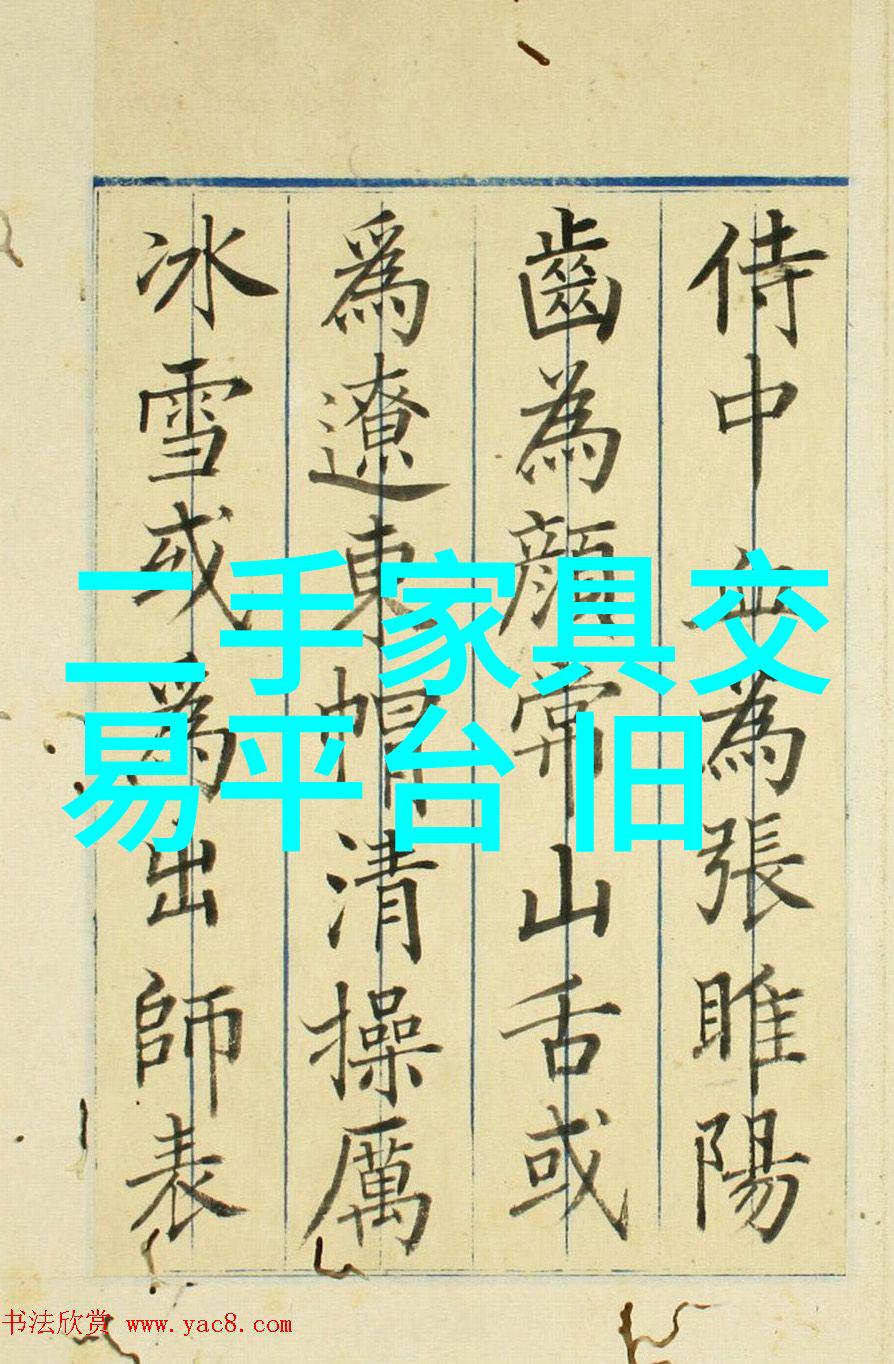 侍中血為張睢陽
齒為顏常山舌或
爲遼東帽清操厲
冰雪或爲出師表
二手家具交
易平台 旧
书法欣赏 www.yac8.com